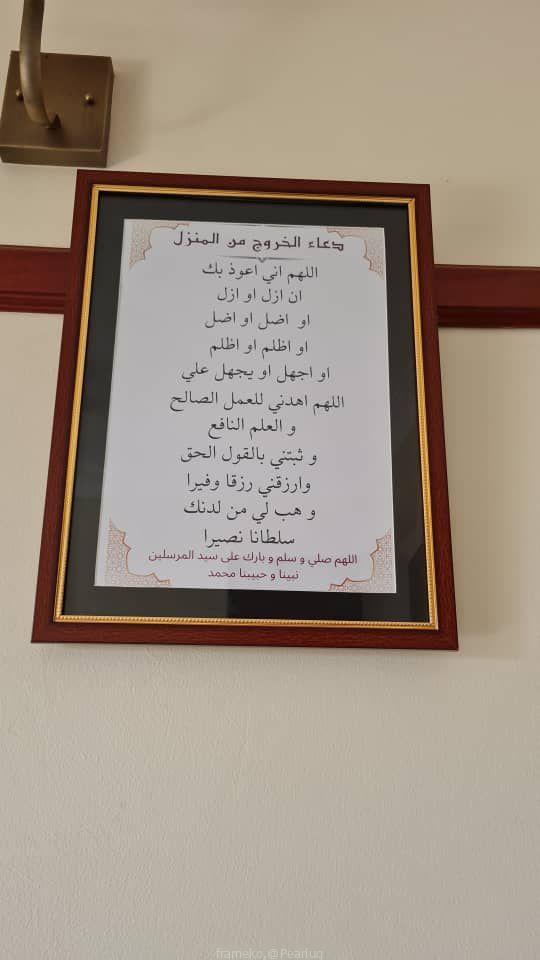 دعاء الخروج من المنزل
اللهم اني اعوذ بك
ان ازل او ازل
او اضل او اضل
او اظلم او اظلم
او اجهل او يجهل علي
اللهم اهدني للعمل الصالح
و العلم النافع
و ثبتني بالقول الحق
وارزقني رزقا وفيرا
و هب لي من لدنك
سلطانا نصيرا
اللهم صلي و سلم و بارك على سيد المرسلين
نبينا و حبيبنا محمد
frameko,@Pearluq